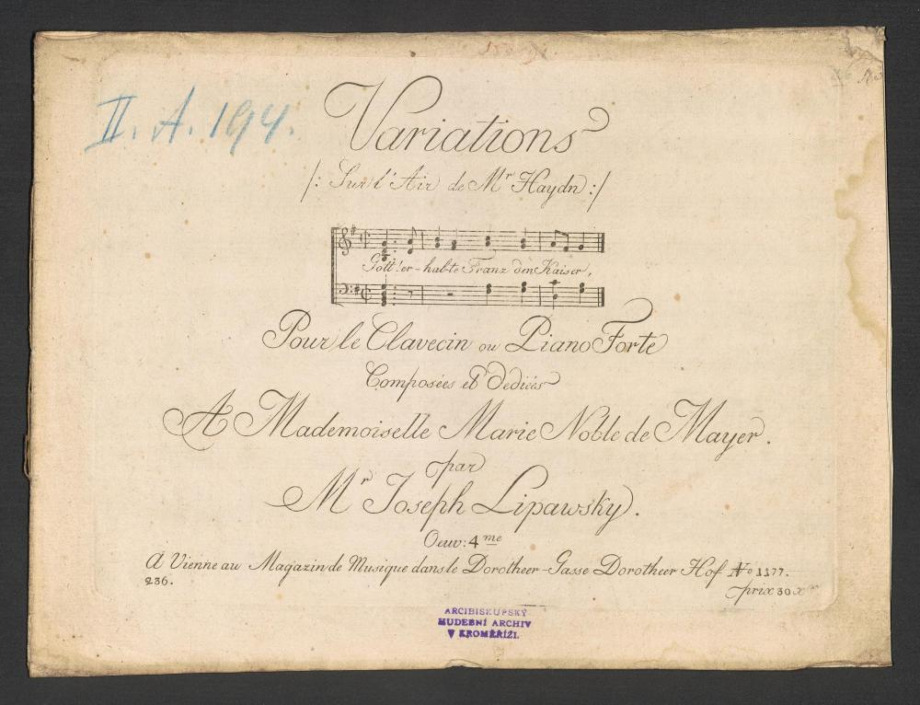 II. A. 194.
Variations
/: Sur l'Air de Mr Haydn :/
Gott! er-halte Franz den Kaiser,
Pour le Clavecin ou Piano Forte
Composées et Dediées
A Mademoiselle Marie Noble de Mayer.
par
Mr Joseph Lipawsky.
Oeuv: 4me
A Vienne au Magazin de Musique dans le Dorotheer-Gasse Dorotheer Hof No 1177.
236.
prix 30 x
ARCIBISKUPSKÝ
HUDEBNÍ ARCHIV
V KROMĚŘÍŽI.